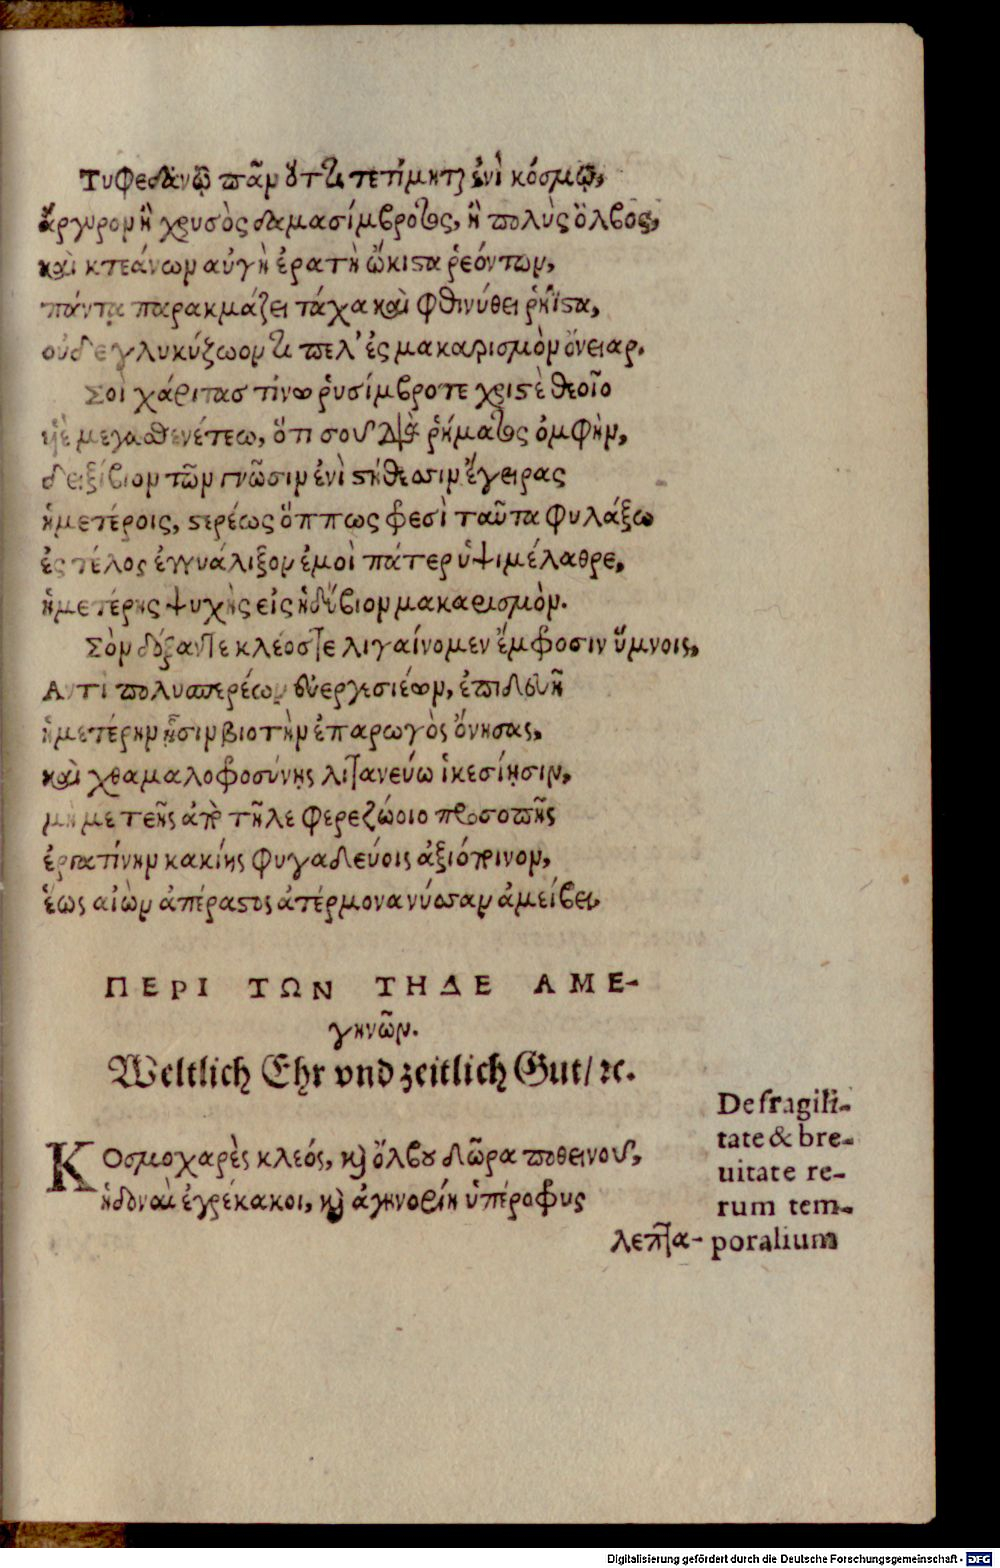 Τυφεδανῷ πᾶν ὅττι τετίμηται ἐνὶ κόσμῳ,
ἄργυρον ἢ χρυσὸς δαμασίμβροτος, ἢ πολὺς ὄλβος,
καὶ κτεάνων αὐγὴ ἐρατὴ ὤκιστα ῥεόντων,
πάντα παρακμάζει τάχα καὶ φθινύθει ῥήϊστα,
οὐδὲ γλυκύζωον τι πελ' ἐς μακαρισμὸν ὄνειαρ.
Σοὶ χάριτας τίνω ῥυσίμβροτε χριστὲ θεοῖο
ἠὲ μεγασθενέτεω, ὅτι σοῦ διὰ ῥήματος ὀμφὴν,
δειξίβιον τῶν γνῶσιν ἐνὶ στήθεσιν ἔγειρας
ἡμετέροις, στερέως ὅππως φρεσὶ ταῦτα φυλάξω
ἐς τέλος ἐγγυάλιξον ἐμοὶ πάτερ ὑψιμέλαθρε,
ἡμετέρης ψυχῆς εἰς ἡδύβιον μακαρισμὸν.
Σὸν δόξαν τε κλέος τε λιγαίνομεν ἔμφροσιν ὕμνοις,
Ἀντὶ πολυσπερέων εὐεργεσιέων, ἐπιδευῆ
ἡμετέρην ᾗσιν βιοτὴν ἐπαρωγὸς ὄνησας,
καὶ χθαμαλοφροσύνης λιτανεύω ἱκεσίῃσιν,
μή με τεῆς ἀπὸ τῆλε φερεζώοιο προσοπῆς
ἐργατίνην κακίης φυγαδεύοις ἀξιόποινον,
ἕως αἰὼν ἀπέραστος ἀτέρμονα νύσσαν ἀμείβει,
ΠΕΡΙ ΤΩΝ ΤΗΔΕ ΑΜΕ-
γηνῶν.
Weltlich Ehr vnd zeitlich Gut/ ꝛc.
Κοσμοχαρὲς κλεός, καὶ ὄλβου δῶρα ποθεινοῦ,
ἡδοναὶ ἐγρέκακοι, καὶ ἀγηνορίη ὑπέροφρυς
λεπτα-
De fragili-
tate & bre-
uitate re-
rum tem-
poralium
Digitalisierung gefördert durch die Deutsche Forschungsgemeinschaft - DFG